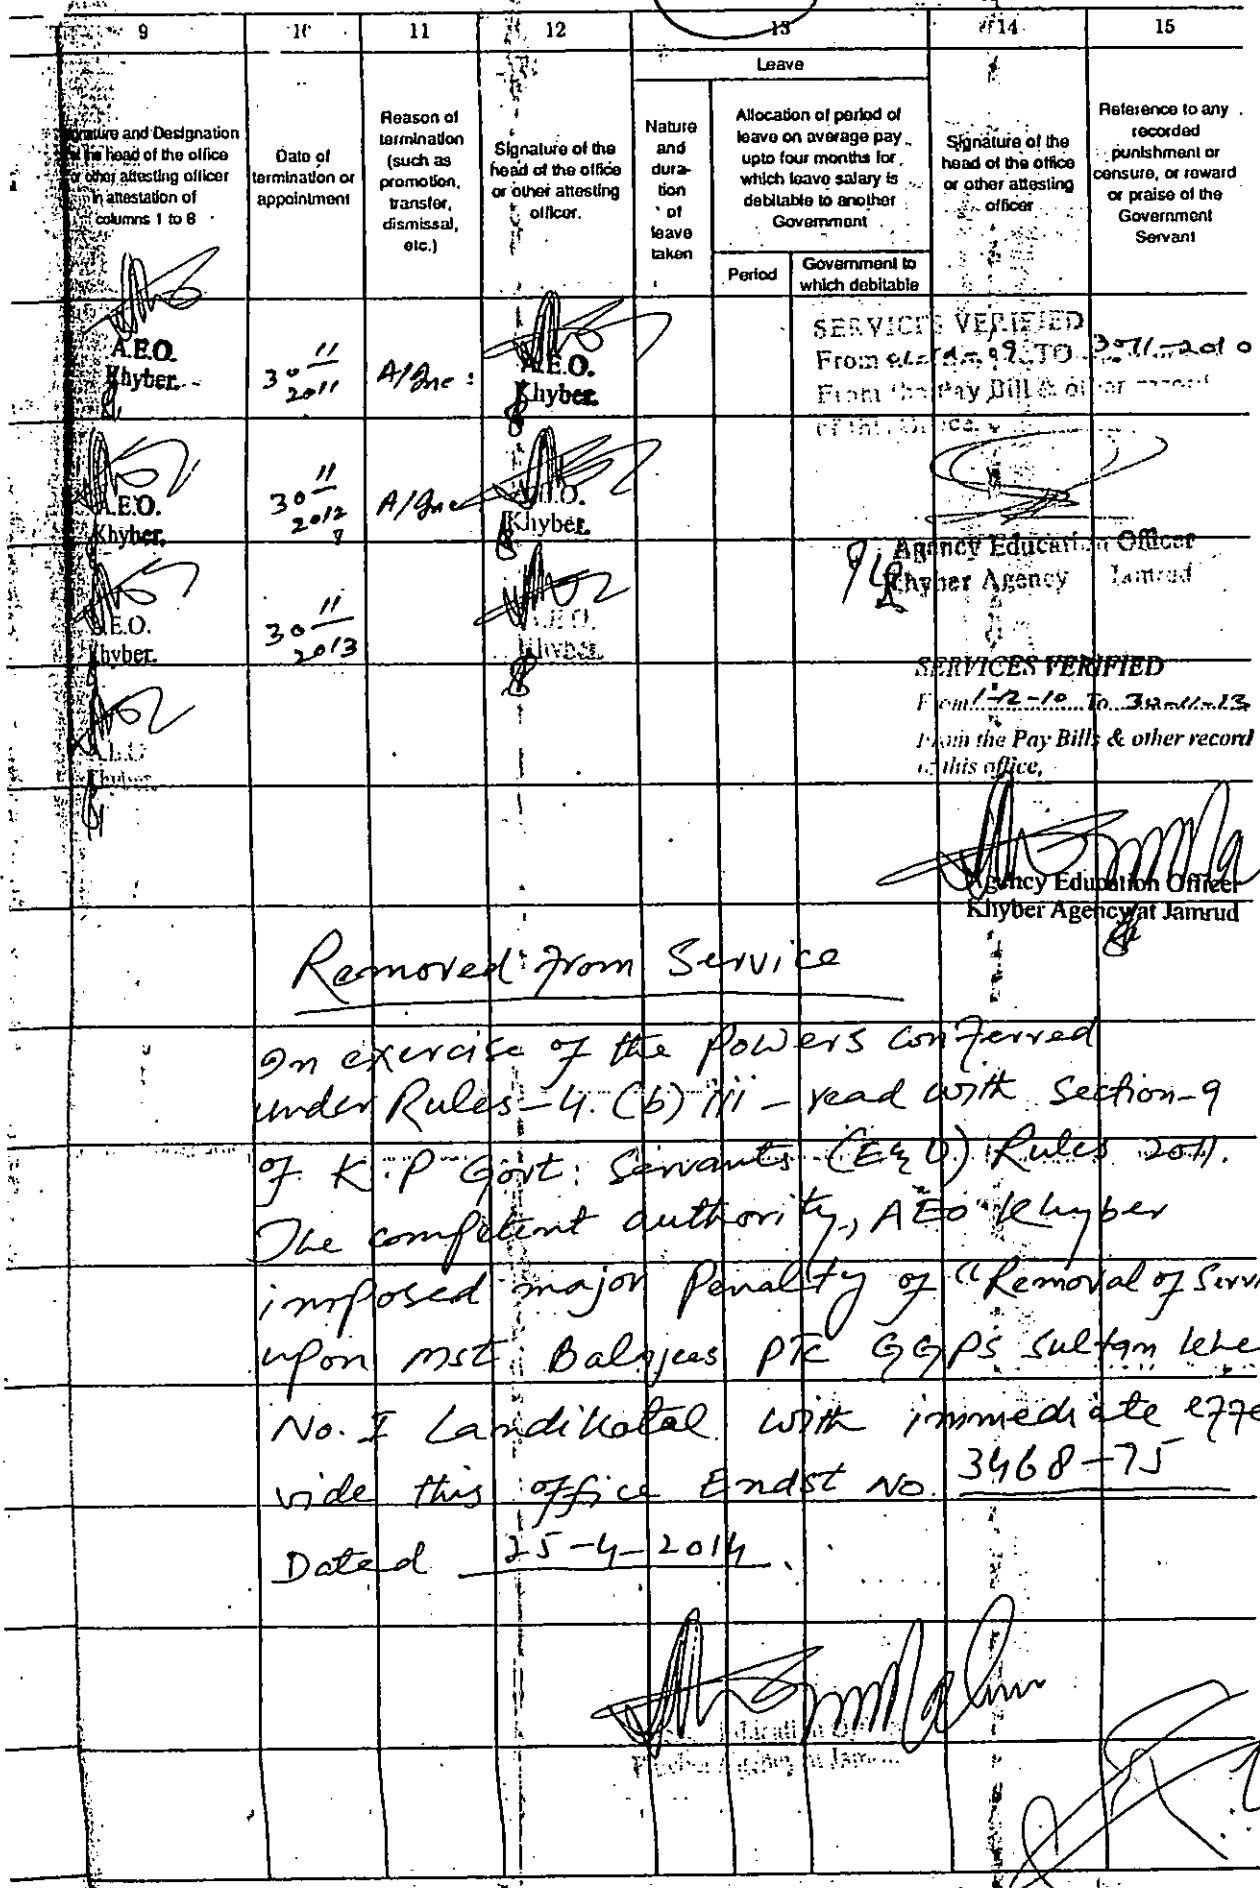 9 10 11 12 13 14 15
Leave
Signature and Designation
of the head of the office
or other attesting officer
in attestation of
columns 1 to 8
Date of
termination or
appointment
Reason of
termination
(such as
promotion,
transfer,
dismissal,
etc.)
Signature of the
head of the office
or other attesting
officer.
Nature
and
dura-
tion
of
leave
taken
Allocation of period of
leave on average pay
upto four months for
which leave salary is
debitable to another
Government
Period
Government to
which debitable
Signature of the
head of the office
or other attesting
officer
Reference to any
recorded
punishment or
censure, or reward
or praise of the
Government
Servant
A.E.O.
Khyber.
30 11
2011
A/Inc:
A.E.O.
Khyber.
SERVICES VERIFIED
From TO 30-11-2010
From the Pay Bill & other record
of this Office.
A.E.O.
Khyber.
30 11
2012
A/Inc
A.E.O.
Khyber.
Agency Education Officer
Khyber Agency Jamrud
A.E.O.
Khyber.
30 11
2013
A.E.O.
Khyber.
SERVICES VERIFIED
From 1-12-10 To 30-11-13
From the Pay Bills & other record
of this office,
A.E.O
Khyber
Agency Education Officer
Khyber Agency at Jamrud
Removed from Service
In exercise of the Powers conferred
under Rules-4. (b) iii - read with Section-9
of K.P Govt: Servants (E&D) Rules 2011.
The competent authority, AEO Khyber
imposed major Penalty of "Removal of Servi
upon mst Balqees PTC GGPS Sultan
No. I Landikotal with immediate effe
vide this office Endst No. 3468-75
Dated 25-4-2014.
Education Officer
Khyber Agency at Jamrud